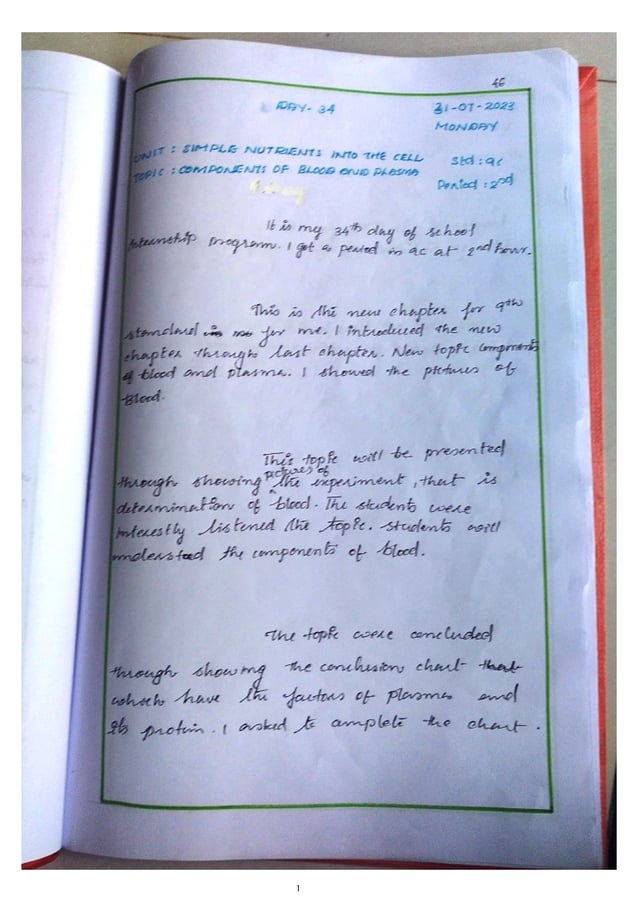 46
DAY- 34 31-07-2023
MONDAY
UNIT : SIMPLE NUTRIENTS INTO THE CELL Std : 9c
TOPIC : COMPONENTS OF BLOOD AND PLASMA Period : 2nd
It is my 34th day of school
internship program. I got a period in 9c at 2nd hour.
This is the new chapter for 9th
standard for me. I introduced the new
chapter through last chapter. New topic components
of blood and plasma. I showed the pictures of
Blood.
This topic will be presented
through showing pictures of the experiment, that is
determination of blood. The students were
interestly listened the topic. students will
understood the components of blood.
The topic were concluded
through showing the conclusion chart that
which have the factors of plasma and
its protein. I asked to complete the chart.
1